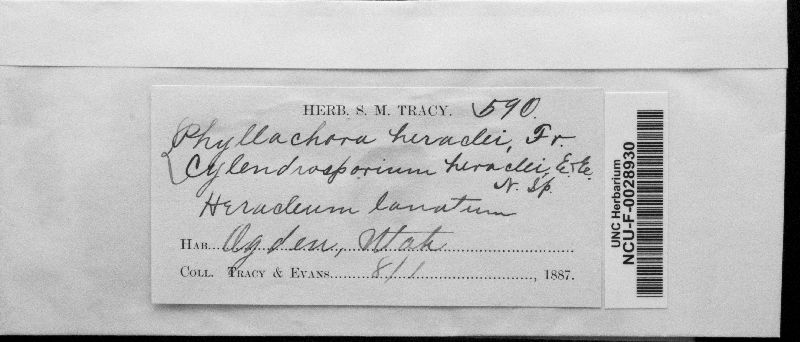 HERB. S. M. TRACY. 590.
Phyllachora heraclei, Fr.
Cylendrosporium heraclei, E. & E.
N. Sp.
Heracleum lanatum
HAB. Ogden, Utah
COLL. TRACY & EVANS. 8/1, 1887.
UNC Herbarium
NCU-F-0028930